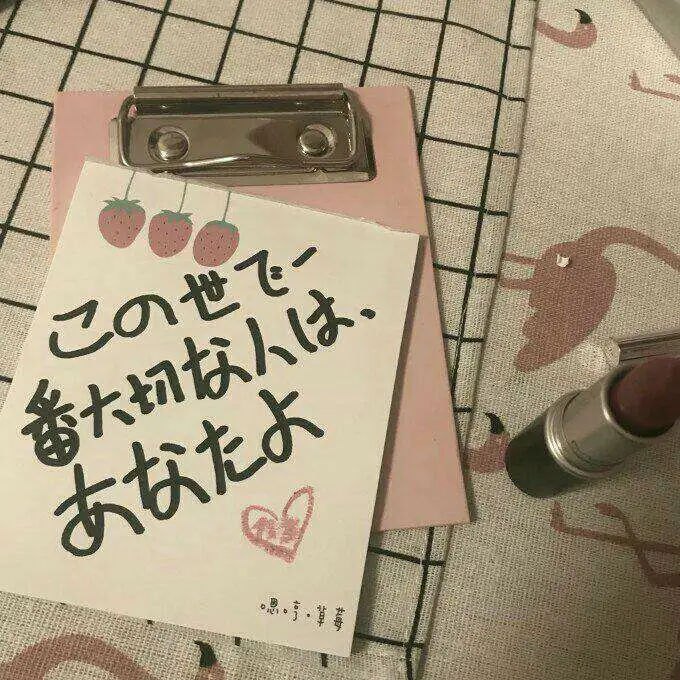 この世で一
番大切な人は、
あなたよ
嗯哼.草莓